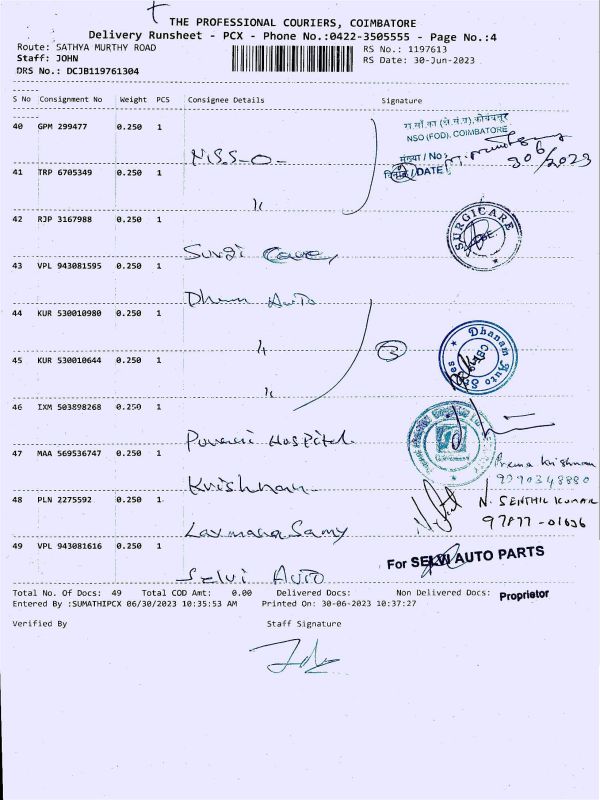 THE PROFESSIONAL COURIERS, COIMBATORE
Delivery Runsheet - PCX - Phone No.:0422-3505555 - Page No.:4
Route: SATHYA MURTHY ROAD
RS No.: 1197613
Staff: JOHN
RS Date: 30-Jun-2023
DRS No.: DCJB119761304
S No Consignment No Weight PCS Consignee Details Signature
40 GPM 299477 0.250 1
NSO (FOD), COIMBATORE
/ No:
/ DATE
30/6/2023
41 TRP 6705349 0.250 1
42 RJP 3167988 0.250 1
SURGICARE
Surgi Care
43 VPL 943081595 0.250 1
Auto
44 KUR 530010980 0.250 1
3
Dhanam Auto
CBE
45 KUR 530010644 0.250 1
46 IXM 503898268 0.250 1
Hospital
47 MAA 569536747 0.250 1
Prema Krishnan
Krishnan
48 PLN 2275592 0.250 1
N. SENTHIL KUMAR
97877-01636
Laxmana Samy
49 VPL 943081616 0.250 1
For SELVI AUTO PARTS
Selvi Auto
Proprietor
Total No. Of Docs: 49 Total COD Amt: 0.00 Delivered Docs: Non Delivered Docs:
Entered By :SUMATHIPCX 06/30/2023 10:35:53 AM Printed On: 30-06-2023 10:37:27
Verified By Staff Signature